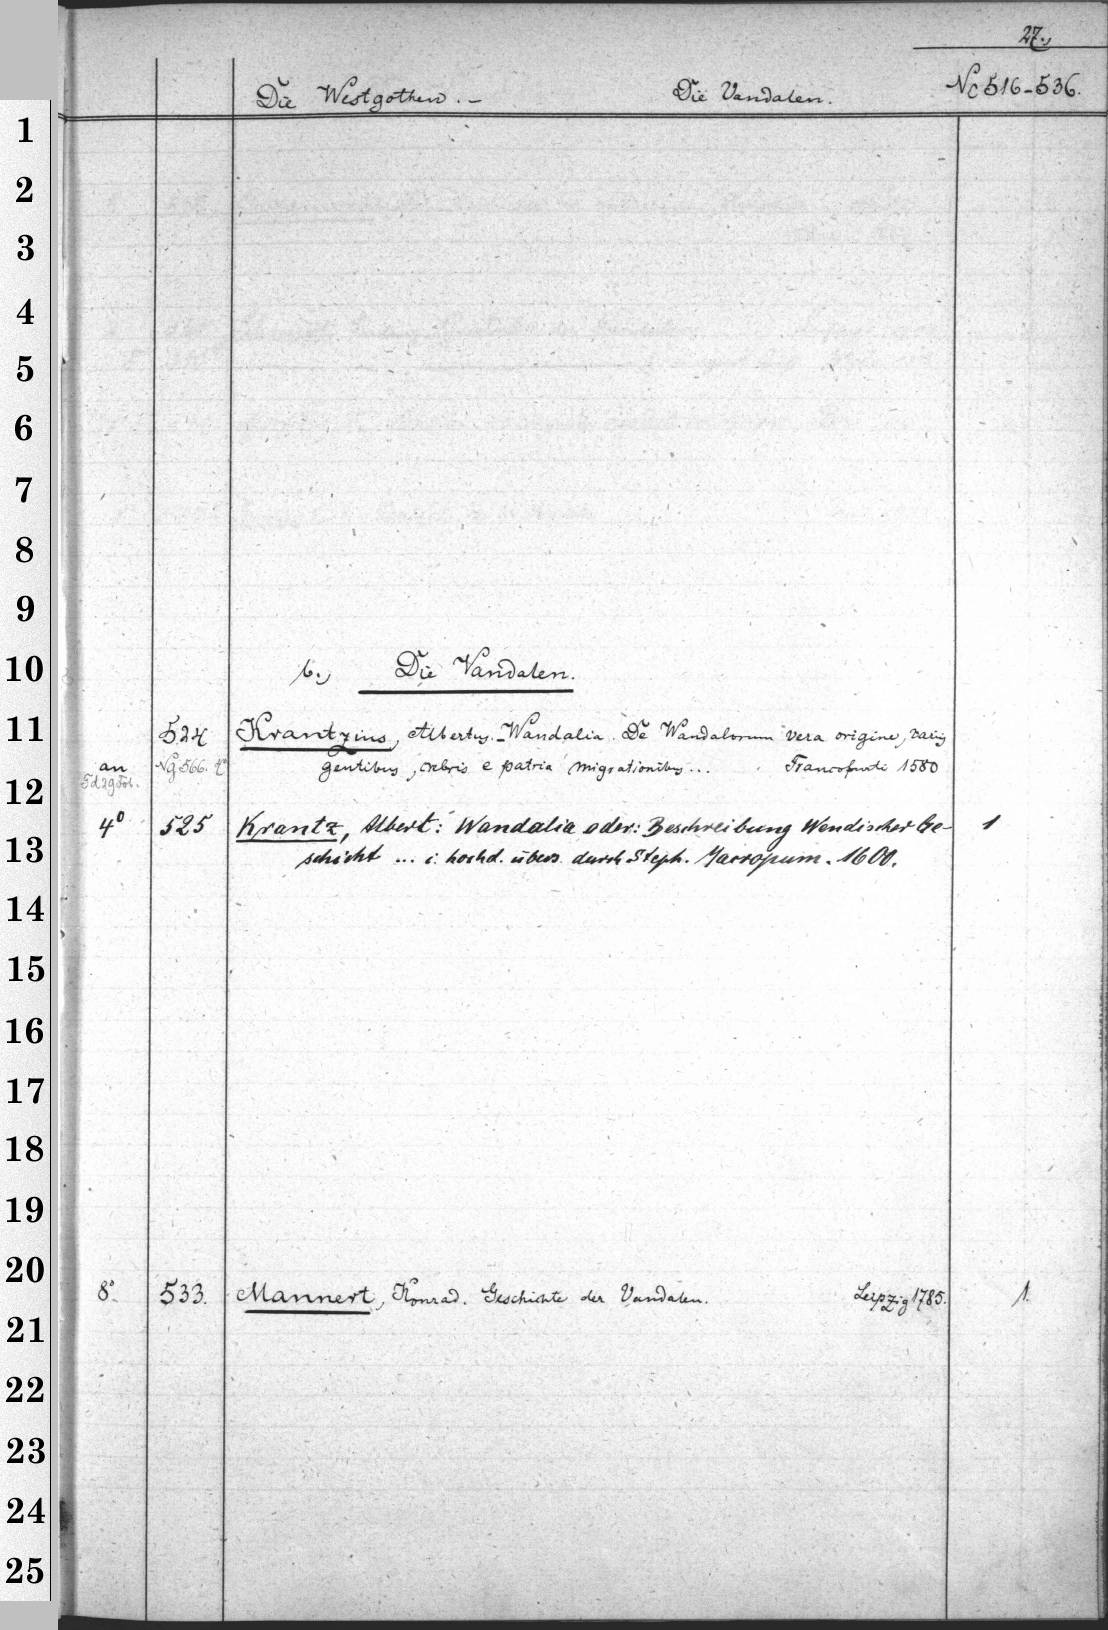 27.,
Die Westgothen. – Die Vandalen. Nc 516-536.
1
2
3
4
5
6
7
8
9
10 b., Die Vandalen.
11 524 Krantzius, Albertus. Wandalia. De Wandalorum vera origine, variis
an Ng 566. 4° gentibus, crebris e patria migrationibus... Francofurti 1580
12
4° 525 Krantz, Albert: Wandalia oder: Beschreibung Wendischer Ge- 1
13 schicht ... i. hochd. übers. durch Steph. Macropum. 1600.
14
15
16
17
18
19
20
8°. 533. Mannert, Konrad. Geschichte der Vandalen. Leipzig 1785. 1.
21
22
23
24
25